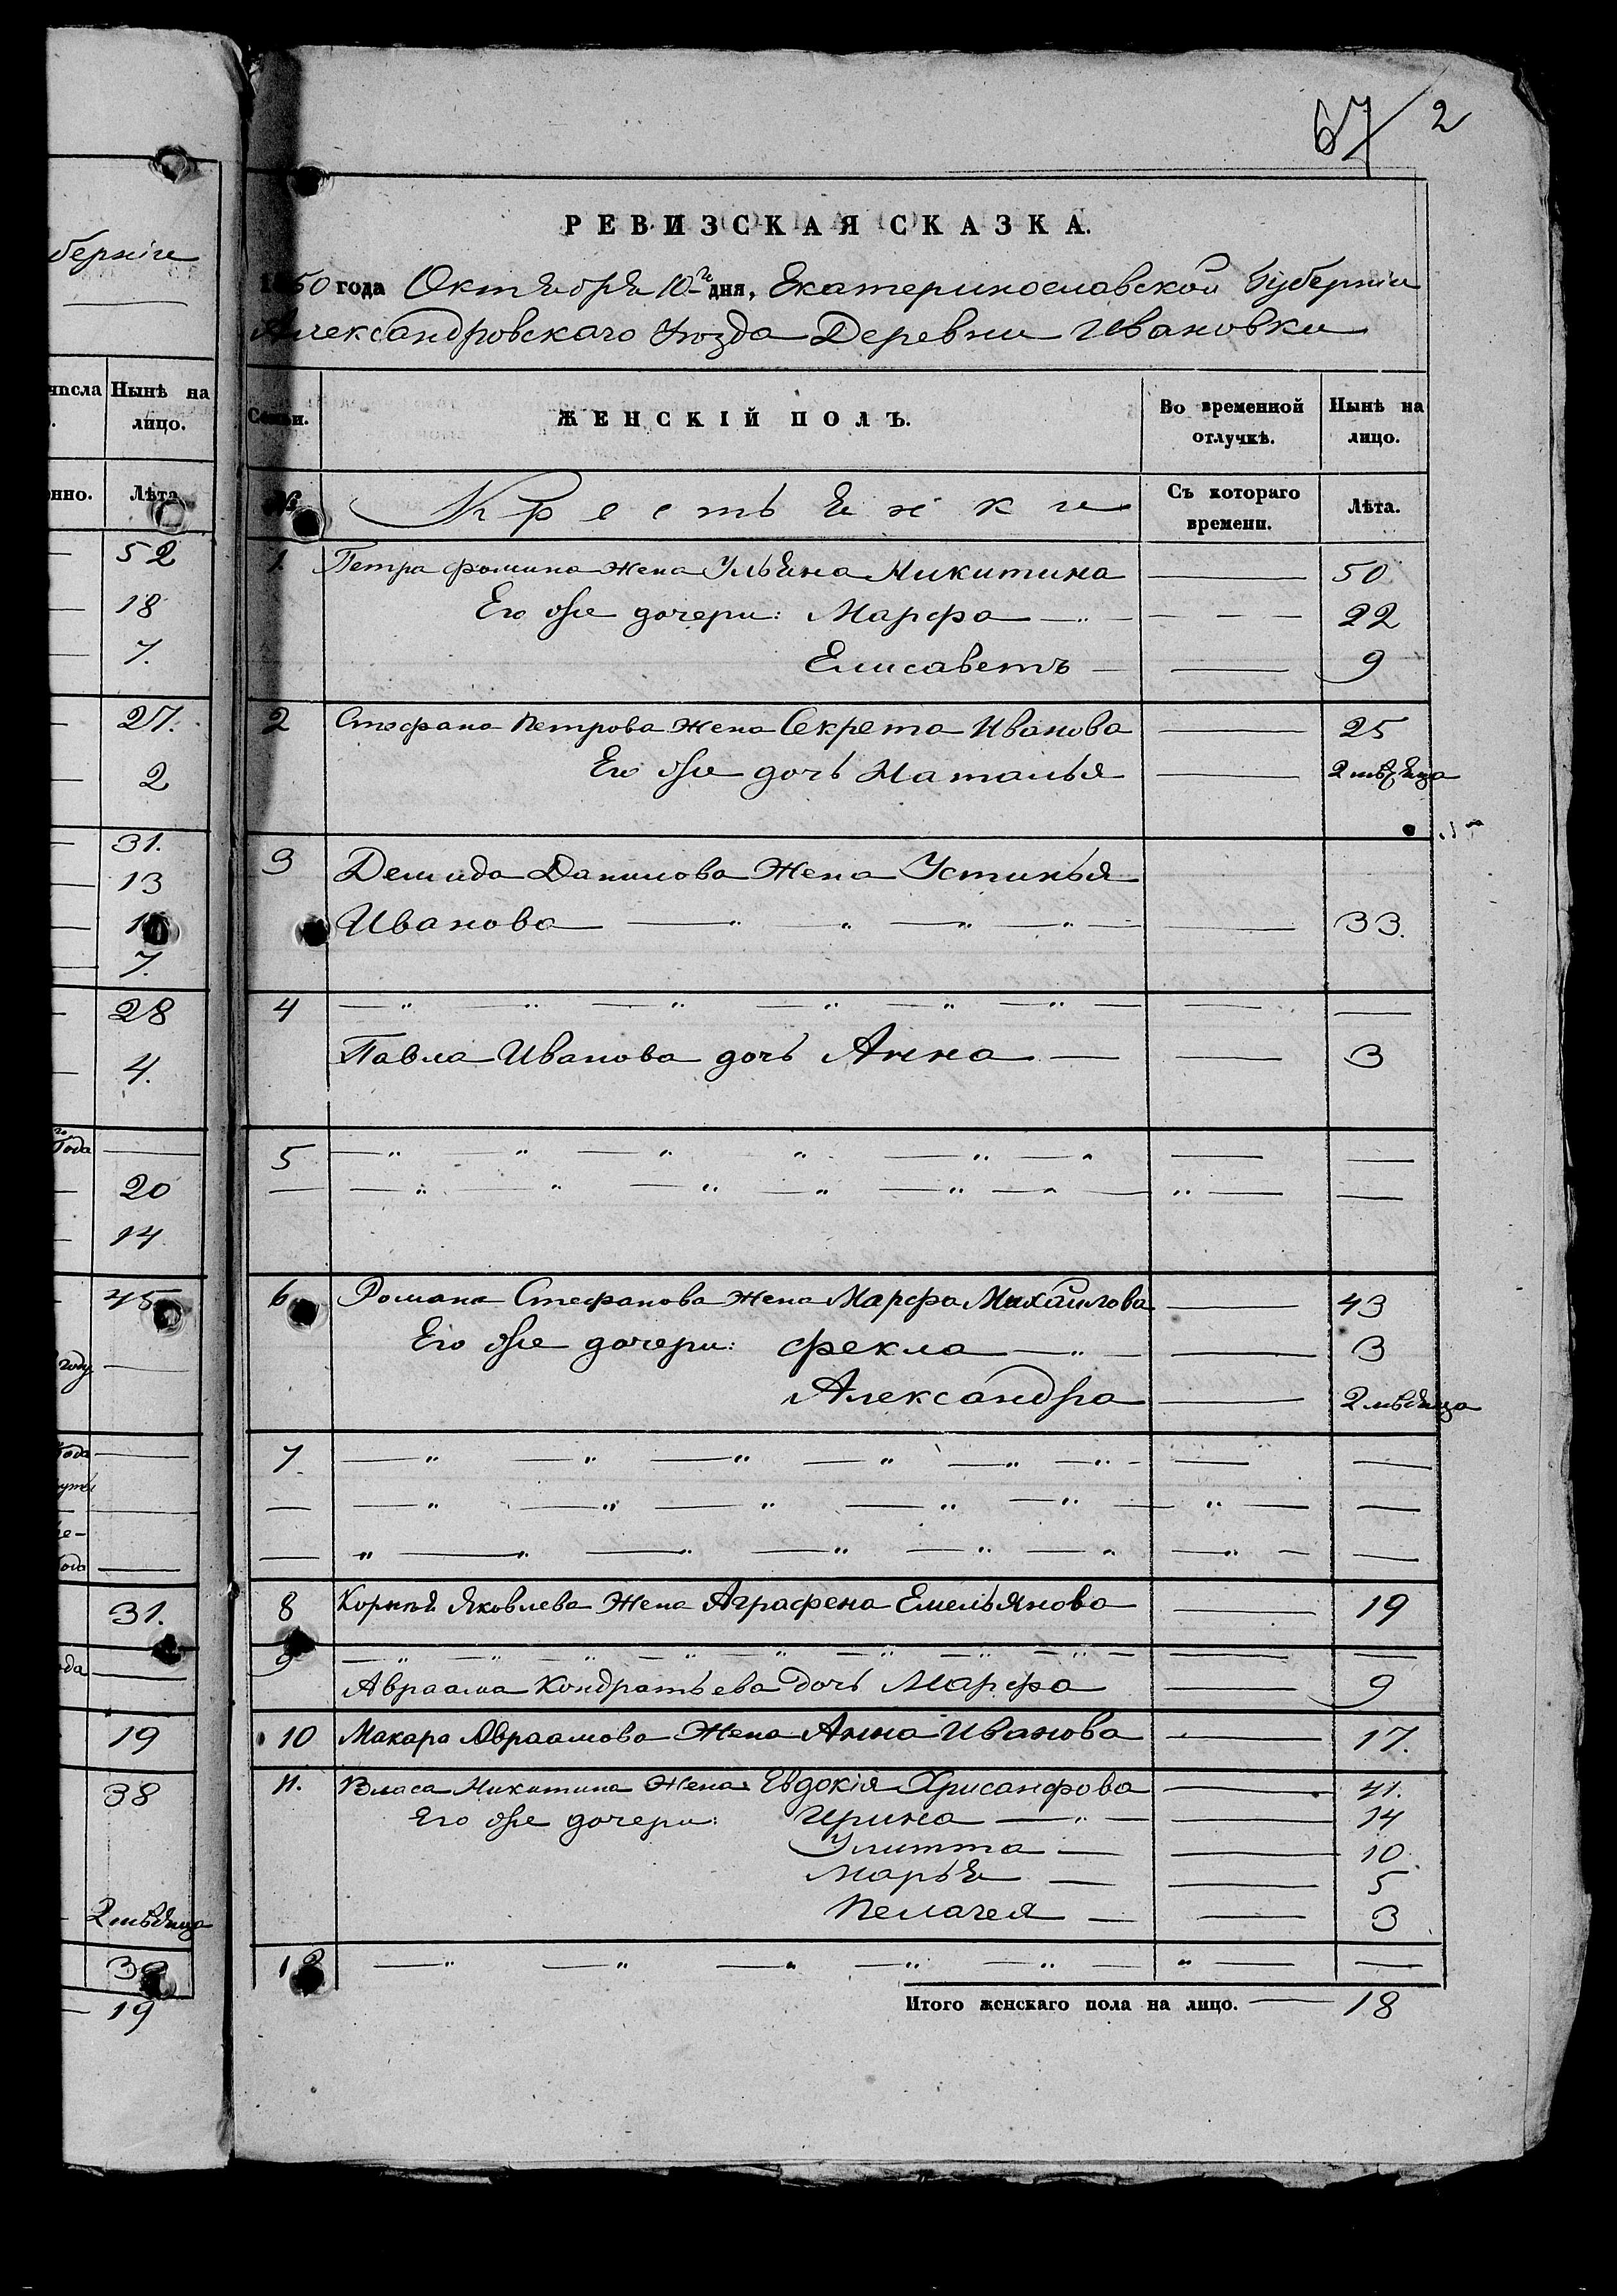 67 2
РЕВИЗСКАЯ СКАЗКА.
1850 года Октября 10-го дня, Екатеринославской Губерніи
Александровскаго Уѣзда Деревни Ивановки
Семьи. ЖЕНСКІЙ ПОЛЪ. Во временной отлучкѣ. Нынѣ на лицо.
№ Крестьянки Съ котораго времени. Лѣта.
1. Петра Фомина жена Ульяна Никитина 50
Его же дочери: Марфа 22
Елисаветъ 9
2 Стефана Петрова жена Секрета Иванова 25
Его же дочь Наталья 2 мѣсяца
3 Демида Данилова жена Устинья
Иванова 33.
4
Павла Иванова дочь Анна 3
5
6 Романа Стефанова жена Марфа Михайлова 43
Его же дочери: Фекла 3
Александра 2 мѣсяца
7.
8 Корнѣя Яковлева жена Аграфена Емельянова 19
9
Авраама Кондратьева дочь Марфа 9
10 Макара Авраамова жена Анна Иванова 17.
11. Власа Никитина жена Евдокія Хрисанфова 41.
Его же дочери: Ирина 14
Улитта 10
Марья 5
Пелагея 3
12
Итого женскаго пола на лицо. 18
берніи
числа Нынѣ на
лицо.
нно. Лѣта
52
18
7.
27.
2
31.
13
10
7.
28
4.
года
20
14
45
году
года
года
31.
да
19
38
2 мѣсяца
19